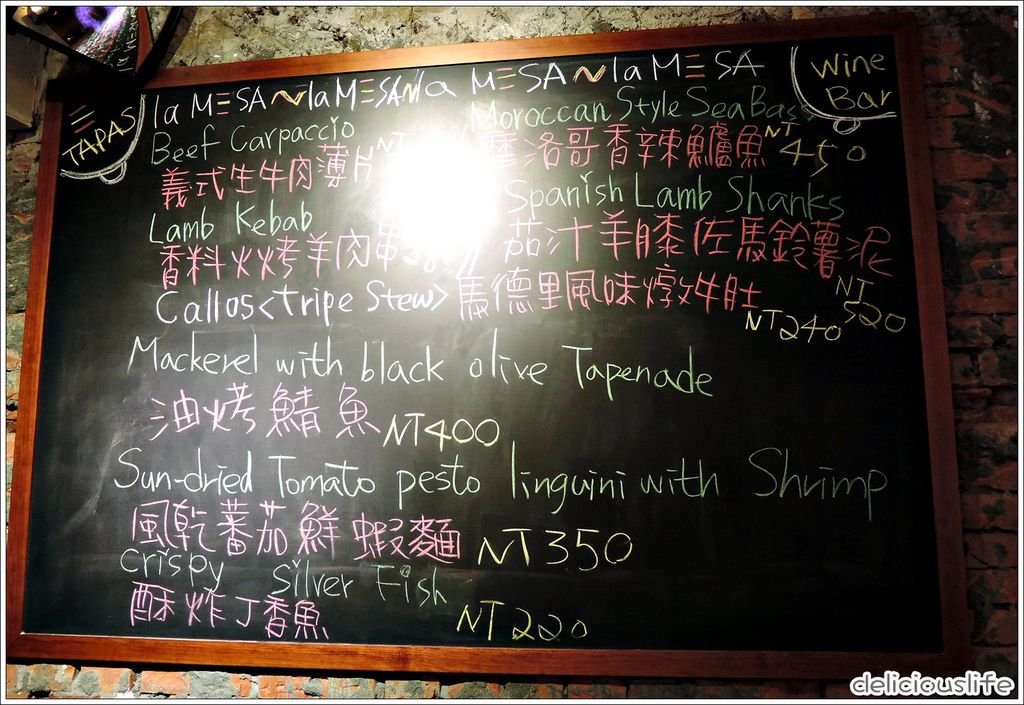 TAPAS
la MESA~la MESA~la MESA~la MESA
Wine Bar
Beef Carpaccio
義式生牛肉薄片
Lamb Kebab
香料火烤羊肉串
Moroccan Style Sea Bass
摩洛哥香辣鱸魚 NT 450
Spanish Lamb Shanks
茄汁羊膝佐馬鈴薯泥 NT 520
Callos<tripe Stew> 馬德里風味燉牛肚 NT240
Mackerel with black olive Tapenade
油烤鯖魚 NT400
Sun-dried Tomato pesto linguini with Shrimp
風乾蕃茄鮮蝦麵 NT350
Crispy Silver Fish
酥炸丁香魚 NT220
deliciouslife